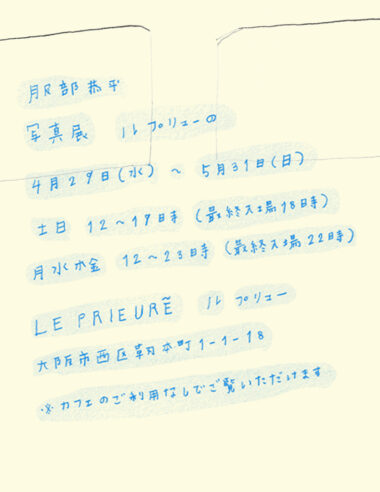 服部恭平
写真展 ル プリューの
4月29日(水) ~ 5月31日(日)
土日 12~19時 (最終入場18時)
月水木金 12~23時 (最終入場22時)
LE PRIEURĒ ル プリュー
大阪市西区靭本町1-1-18
※カフェのご利用なしでご覧いただけます